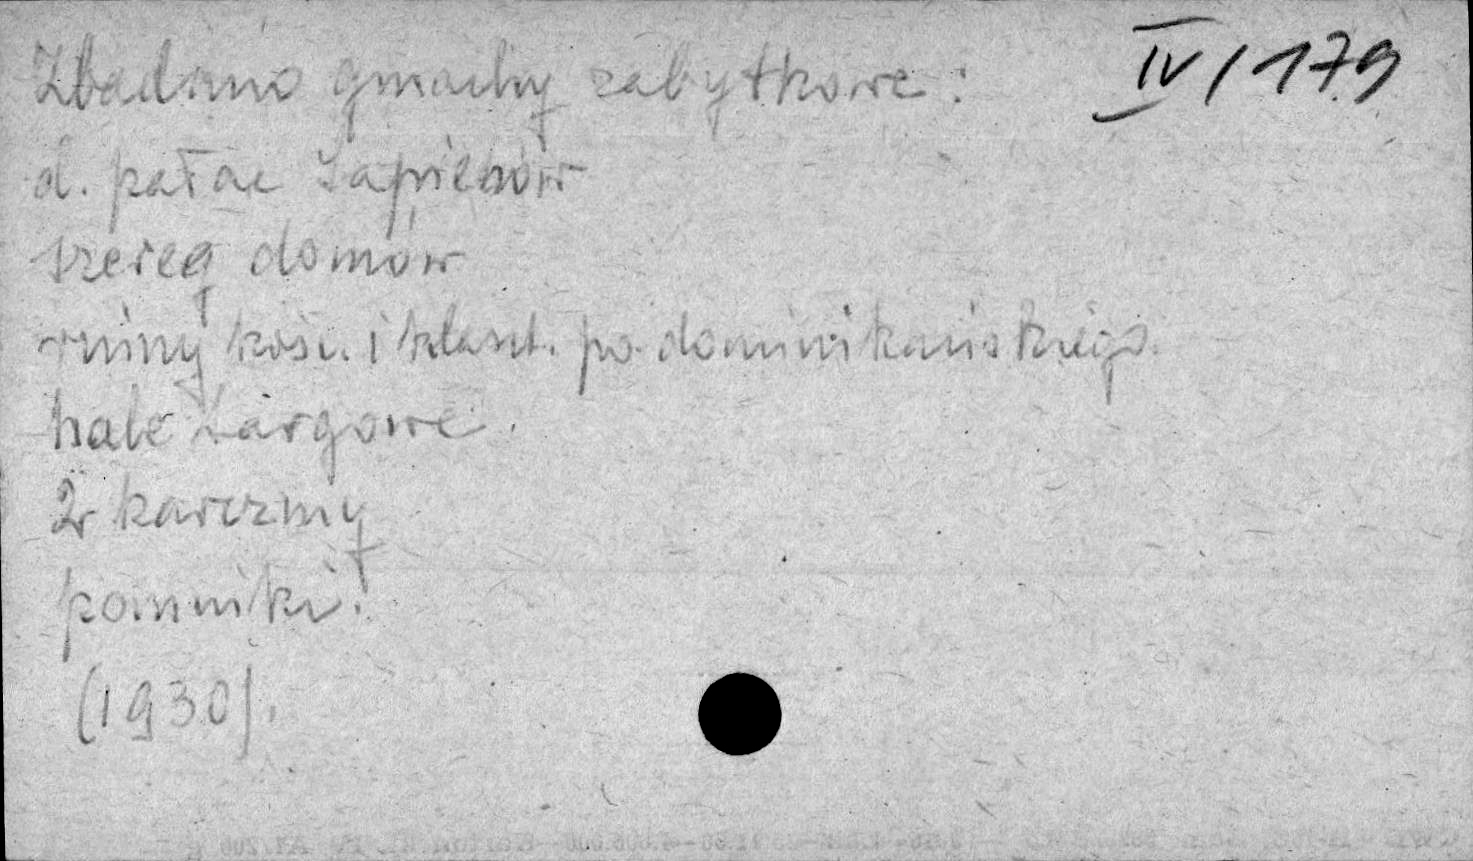 Zbadano gmachy zabytkowe: IV/179
d. pałac Sapiehów
szereg domów
ruiny kośc. i klaszt. po dominikańskiego.
hale targowe.
2 karczmy
pomniki.
(1930).